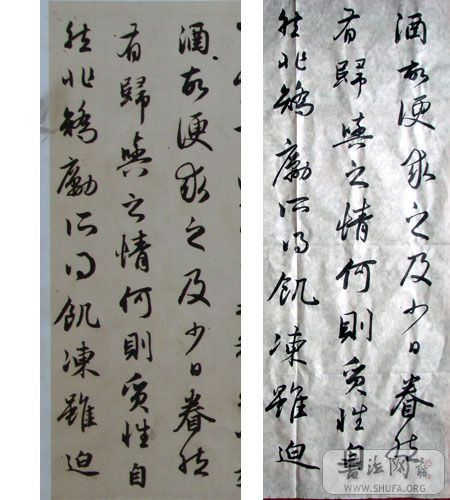 酒故便求之及少日眷然
有歸與之情何則質性自
然非矯勵所得飢凍雖迫
酒故便求之及少日眷然
有歸與之情何則質性自
然非矯勵所得飢凍雖迫
書法网
WWW.SHUFA.ORG